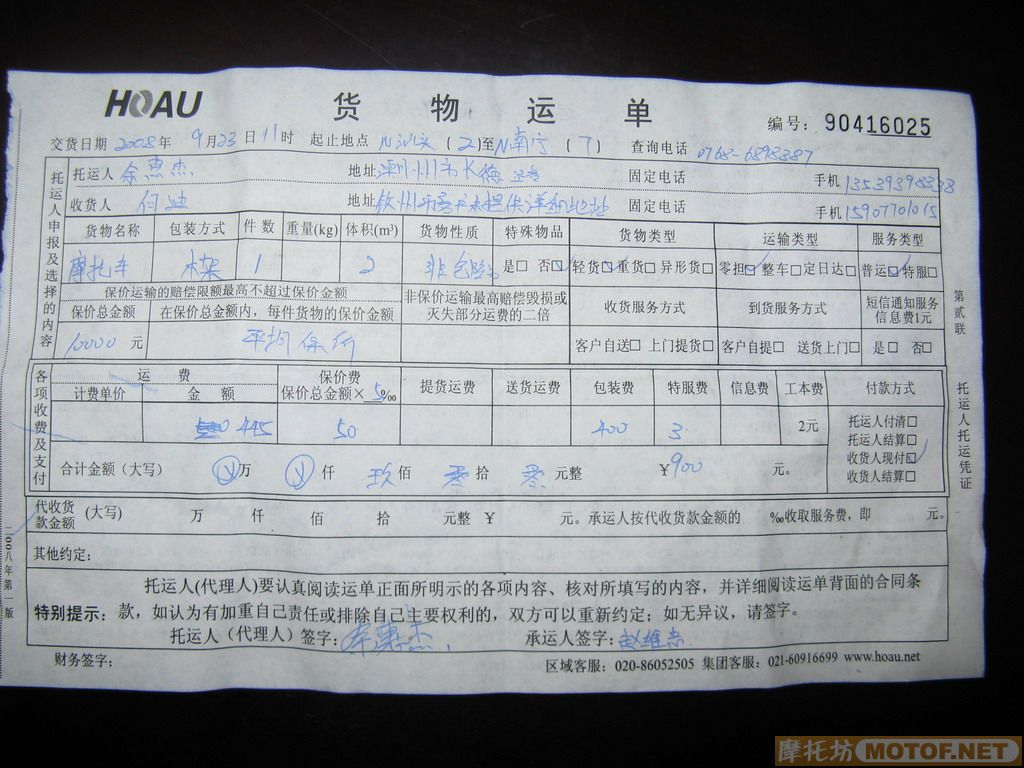 HOAU 货物运单 编号: 90416025
交货日期 2008年 9月23日11时 起止地点 (2)至 南宁 (7) 查询电话 0768-6898887
托运人 余惠杰 地址 潮州市 固定电话 手机
收货人 何迪 地址 钦州 客户未提供详细地址 固定电话 手机 15907701015
托运人申报及选择的内容
货物名称 包装方式 件数 重量(kg) 体积(m³) 货物性质 特殊物品 货物类型 运输类型 服务类型
摩托车 木架 1 2 非危险 是□ 否□ 轻货□ 重货□ 异形货□ 零担□ 整车□ 定日达□ 普运□ 特服□
保价运输的赔偿限额最高不超过保价金额 非保价运输最高赔偿毁损或灭失部分运费的二倍 收货服务方式 到货服务方式 短信通知服务信息费1元
保价总金额 在保价总金额内，每件货物的保价金额
10000 元 平均保价 客户自送□ 上门提货□ 客户自提□ 送货上门□ 是□ 否□
第贰联
托运人托运凭证
各项收费及支付
运费 保价费 提货运费 送货运费 包装费 特服费 信息费 工本费 付款方式
计费单价 金额 保价总金额×5‰
445 50 400 3 2元
托运人付清□
托运人结算□
收货人现付□
收货人结算□
合计金额（大写） 万 仟 玖佰 零拾 零元整 ¥900 元。
代收货款金额 (大写) 万 仟 佰 拾 元整 ¥ 元。承运人按代收货款金额的 ‰收取服务费，即 元。
其他约定:
特别提示:
托运人(代理人)要认真阅读运单正面所明示的各项内容、核对所填写的内容，并详细阅读运单背面的合同条
款，如认为有加重自己责任或排除自己主要权利的，双方可以重新约定；如无异议，请签字。
托运人（代理人）签字: 余惠杰 承运人签字: 赵维志
二00八年第一版
财务签字: 区域客服: 020-86052505 集团客服: 021-60916699 www.hoau.net
摩托坊 MOTOF.NET